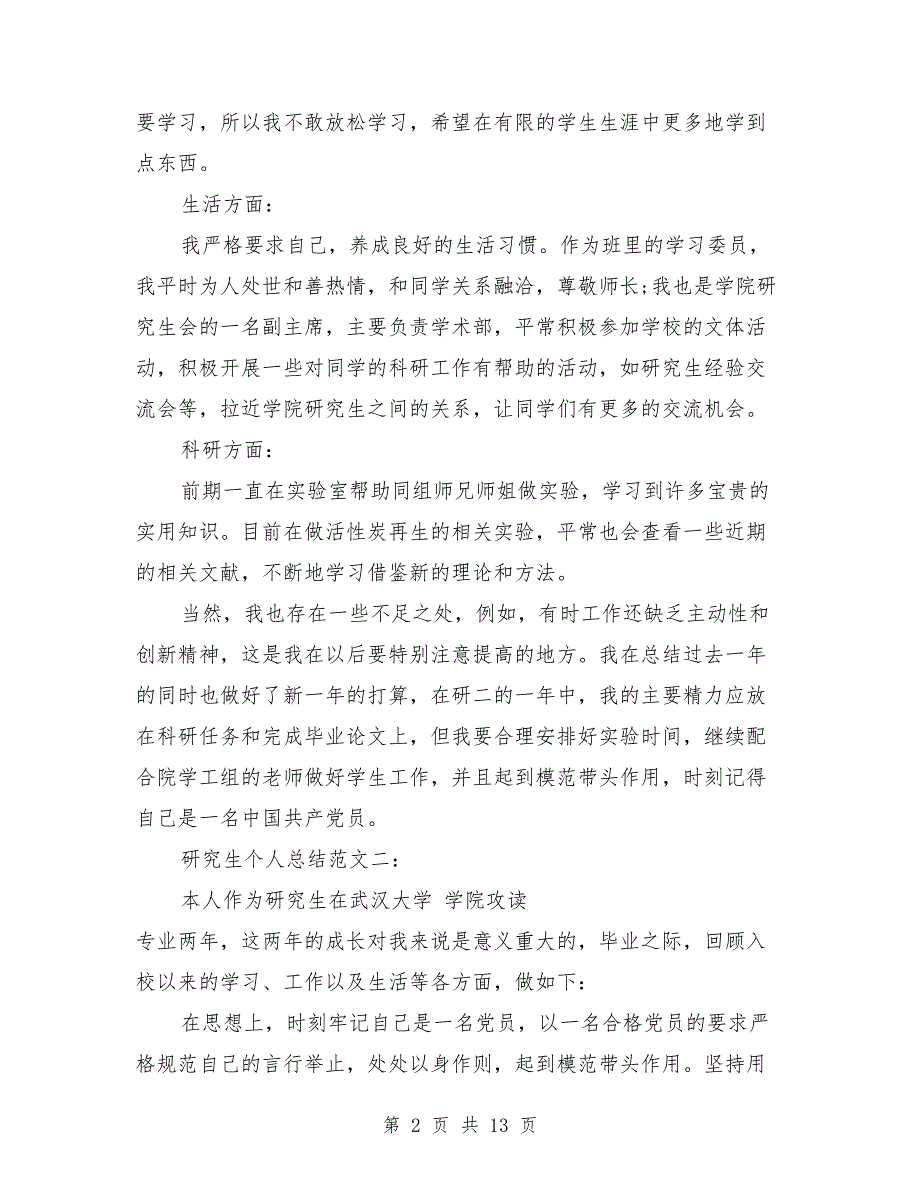 要学习，所以我不敢放松学习，希望在有限的学生生涯中更多地学到
点东西。
生活方面：
我严格要求自己，养成良好的生活习惯。作为班里的学习委员，
我平时为人处世和善热情，和同学关系融洽，尊敬师长;我也是学院研
究生会的一名副主席，主要负责学术部，平常积极参加学校的文体活
动，积极开展一些对同学的科研工作有帮助的活动，如研究生经验交
流会等，拉近学院研究生之间的关系，让同学们有更多的交流机会。
科研方面：
前期一直在实验室帮助同组师兄师姐做实验，学习到许多宝贵的
实用知识。目前在做活性炭再生的相关实验，平常也会查看一些近期
的相关文献，不断地学习借鉴新的理论和方法。
当然，我也存在一些不足之处，例如，有时工作还缺乏主动性和
创新精神，这是我在以后要特别注意提高的地方。我在总结过去一年
的同时也做好了新一年的打算，在研二的一年中，我的主要精力应放
在科研任务和完成毕业论文上，但我要合理安排好实验时间，继续配
合院学工组的老师做好学生工作，并且起到模范带头作用，时刻记得
自己是一名中国共产党员。
研究生个人总结范文二：
本人作为研究生在武汉大学 学院攻读
专业两年，这两年的成长对我来说是意义重大的，毕业之际，回顾入
校以来的学习、工作以及生活等各方面，做如下：
在思想上，时刻牢记自己是一名党员，以一名合格党员的要求严
格规范自己的言行举止，处处以身作则，起到模范带头作用。坚持用
第 2 页 共 13 页